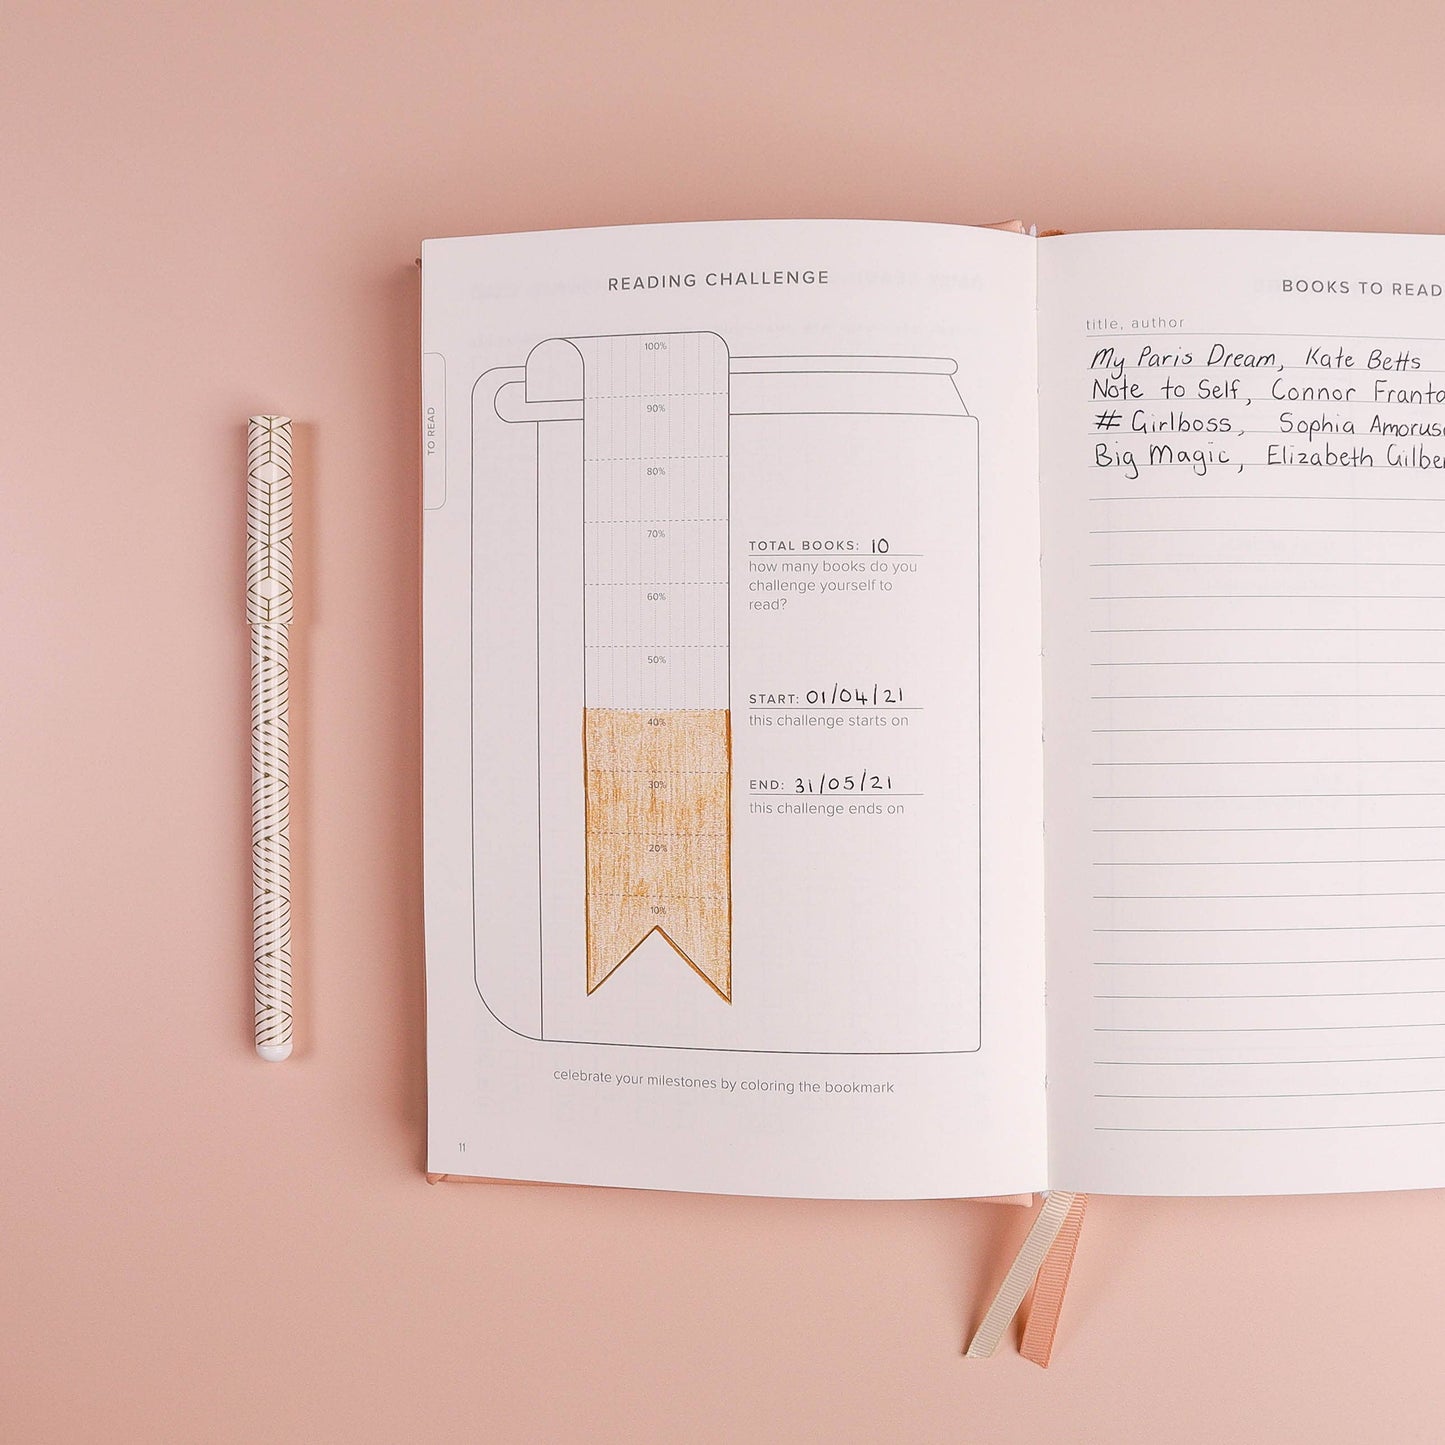 READING CHALLENGE
TO READ
100%
90%
80%
70%
60%
50%
40%
30%
20%
10%
TOTAL BOOKS: 10
how many books do you
challenge yourself to
read?
START: 01/04/21
this challenge starts on
END: 31/05/21
this challenge ends on
celebrate your milestones by coloring the bookmark
11
BOOKS TO READ
title, author
My Paris Dream, Kate Betts
Note to Self, Connor Franta
# Girlboss, Sophia
Big Magic, Elizabeth